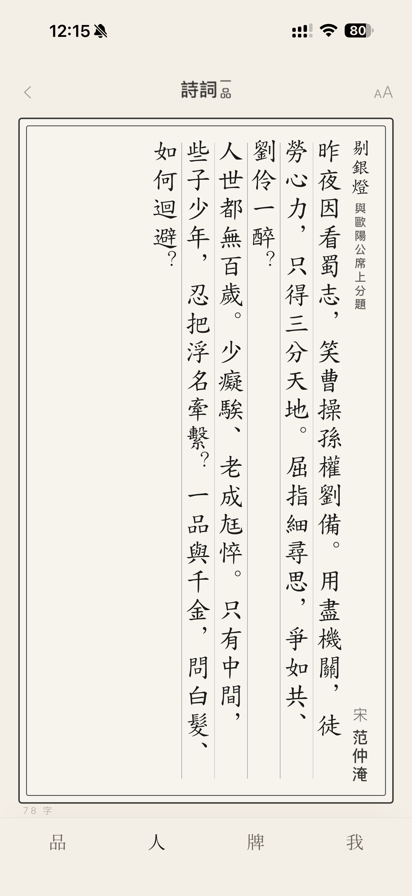 12:15
80
詩詞一品
AA
剔銀燈 與歐陽公席上分題
宋 范仲淹
昨夜因看蜀志，笑曹操孫權劉備。用盡機關，徒
勞心力，只得三分天地。屈指細尋思，爭如共、
劉伶一醉？
人世都無百歲。少癡騃、老成尪悴。只有中間，
些子少年，忍把浮名牽繫？一品與千金，問白髮、
如何迴避？
78 字
品 人 牌 我